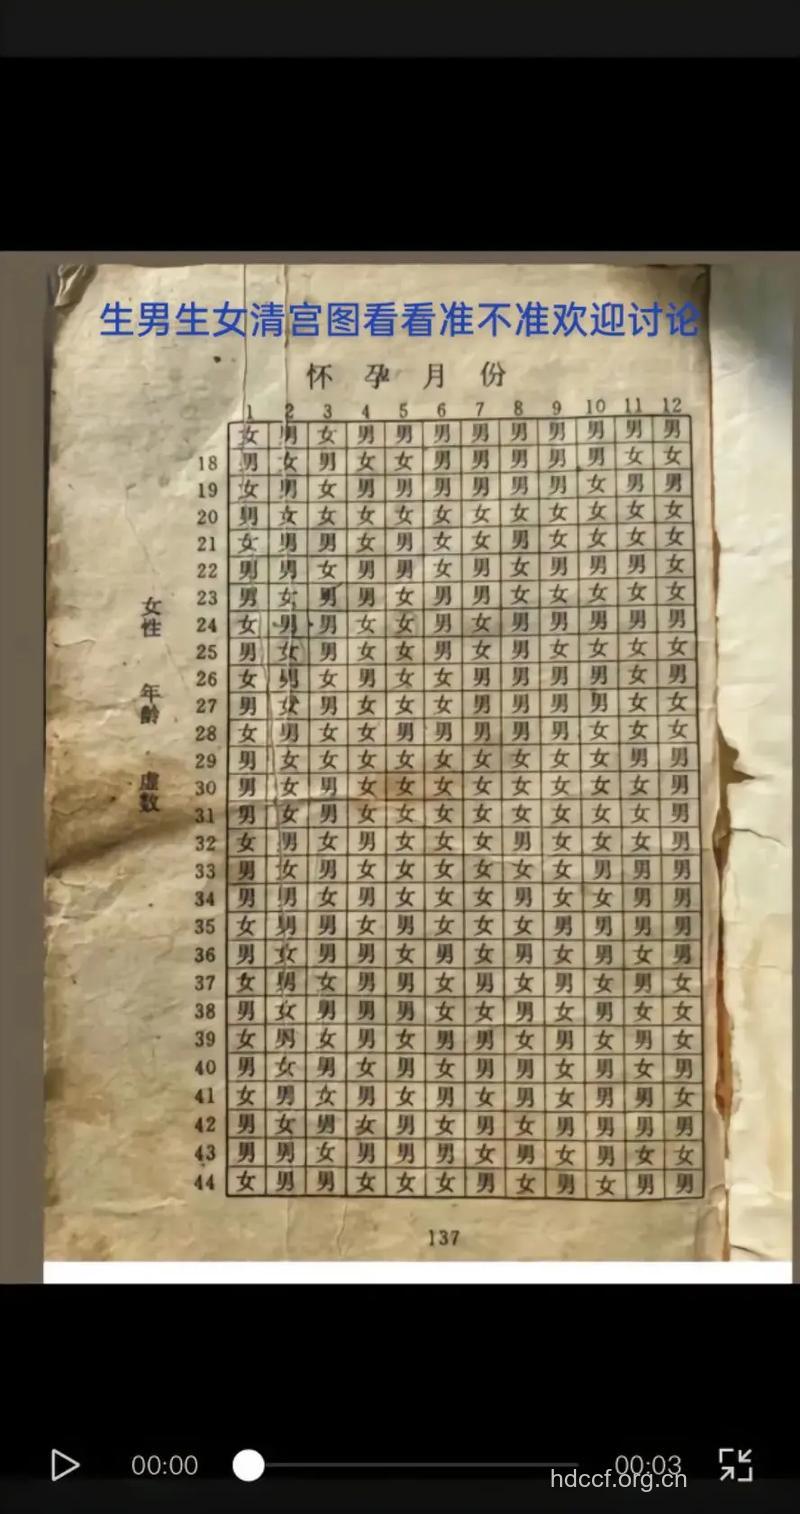 生男生女清宫图看看准不准欢迎讨论
怀 孕 月 份
1 2 3 4 5 6 7 8 9 10 11 12
女 男 女 男 男 男 男 男 男 男 男 男
18 男 女 男 女 女 男 男 男 男 男 女 女
19 女 男 女 男 男 男 男 男 男 女 男 男
20 男 女 女 女 女 女 女 女 女 女 女 女
21 女 男 男 女 男 女 女 男 女 女 女 女
22 男 男 女 男 男 女 男 女 男 男 男 女
23 男 女 男 男 女 男 男 女 女 女 女 女
24 女 男 男 女 女 男 女 男 男 男 男 男
25 男 女 男 女 女 男 女 男 女 女 女 女
26 女 男 女 男 女 女 男 男 男 男 女 男
27 男 女 男 女 女 女 男 男 男 男 女 女
28 女 男 女 女 男 男 男 男 男 女 女 女
29 男 女 女 女 女 女 女 女 女 女 男 男
30 男 女 男 女 女 女 女 女 女 女 女 男
31 男 女 男 女 女 女 女 女 女 女 女 男
32 女 男 女 男 女 女 女 男 女 女 女 男
33 男 女 男 女 女 女 女 女 女 男 男 男
34 男 男 女 男 女 女 女 男 女 女 男 男
35 女 男 男 女 男 女 女 女 男 男 男 男
36 男 女 男 男 女 男 女 男 女 男 女 男
37 女 男 女 男 男 女 男 女 男 女 男 女
38 男 女 男 男 男 女 女 男 女 男 女 女
39 女 男 女 男 女 男 男 女 男 女 男 女
40 男 女 男 女 男 女 男 男 女 男 女 男
41 女 男 女 男 女 男 女 男 女 男 男 女
42 男 女 男 女 男 女 男 女 男 男 男 男
43 男 男 女 男 男 男 女 男 女 男 女 女
44 女 男 男 女 女 女 男 女 男 女 男 男
女性 年齡 虚数
137
00:00 00:03
hdccf.org.cn